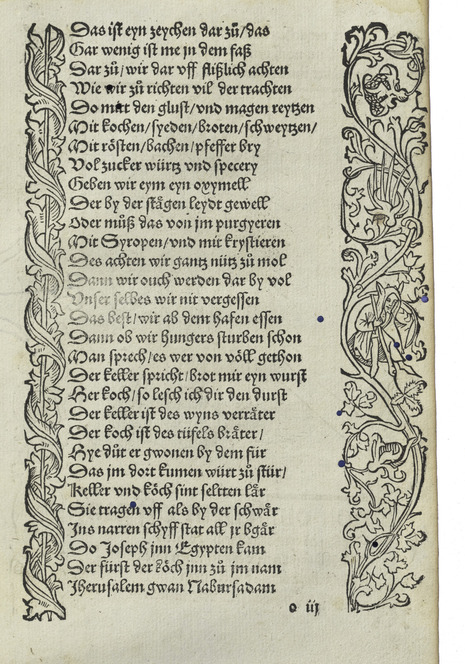 Das ist eyn zeychen dar zuͦ/das
Gar wenig ist me in dem faß
Dar zuͦ/wir dar vff flißlich achten
Wie wir zuͦ richten vil der trachten
Do mitt den glust/vnd magen reytzen
Mit kochen/syeden/broten/schweytzen/
Mit rösten/bachen/pfeffer bry
Vol zucker würtz vnd specery
Geben wir eym eyn oxymell
Der by der stägen leydt gewell
Oder muͦß das von jm purgyeren
Mit Syropen/vnd mit krystieren
Des achten wir gantz nütz zuͦ mol
Dann wir ouch werden dar by vol
Vnser selbes wir nit vergessen
Das best/wir ab dem hafen essen
Dann ob wir hungers sturben schon
Man sprech/es wer von völl gethon
Der keller spricht/brot mir eyn wurst
Her koch/so lesch ich dir den durst
Der keller ist des wyns verräter
Der koch ist des tüfels bräter/
Hye duͤt er gwonen by dem für
Das jm dort kumen würt zuͦ stür/
Keller vnd köch sint seltten lär
Sie tragen vff als by der schwär
Ins narren schyff stat all jr bgär
Do Joseph jnn Egypten kam
Der fürst der köch jnn zuͦ jm nam
Jherusalem gwan Nabursadam
o iij